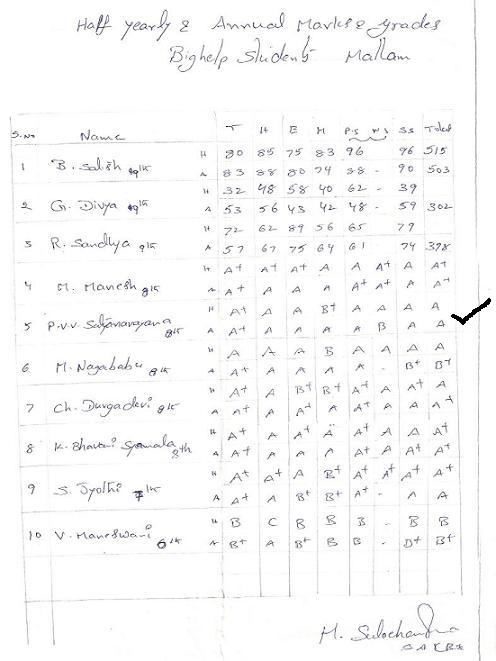 Half yearly & Annual Marks & grades
Bighelp Students Mallam
S.No Name T H E M P.S N.S SS Total
H 80 85 75 83 96 96 515
1 B. Satish 9th A 83 88 80 74 88 - 90 503
H 32 48 58 40 62 - 39
2 G. Divya 9th A 53 56 43 42 48 - 59 302
H 72 62 89 56 65 79
3 R. Sandhya 9th A 57 67 75 64 61 74 398
H A+ A+ A+ A A A+ A A+
4 M. Manesh 8th A A+ A A A A+ A+ A A+
H A+ A A B+ A A A A
5 P.V.V. Satyanarayana 8th A A+ A A A A B A A
H A A A B A A A A
6 M. Nagababu 8th A A+ A A A A - B+ B+
H A+ A B+ B+ A+ A A+ A
7 Ch. Durgadevi 8th A A+ A A+ A A A+ A A+
H A+ A A+ A A+ A A A+
8 K. Bhavani Syamala 8th A A+ A A A A+ A+ A A+
H A+ A+ A B+ A+ A A+ A+
9 S. Jyothi 7th A A+ A B+ B+ A+ - A A
H B C B B B - B B
10 V. Maneswari 6th A B+ A B+ B B - B+ B+
M. Sulochandra